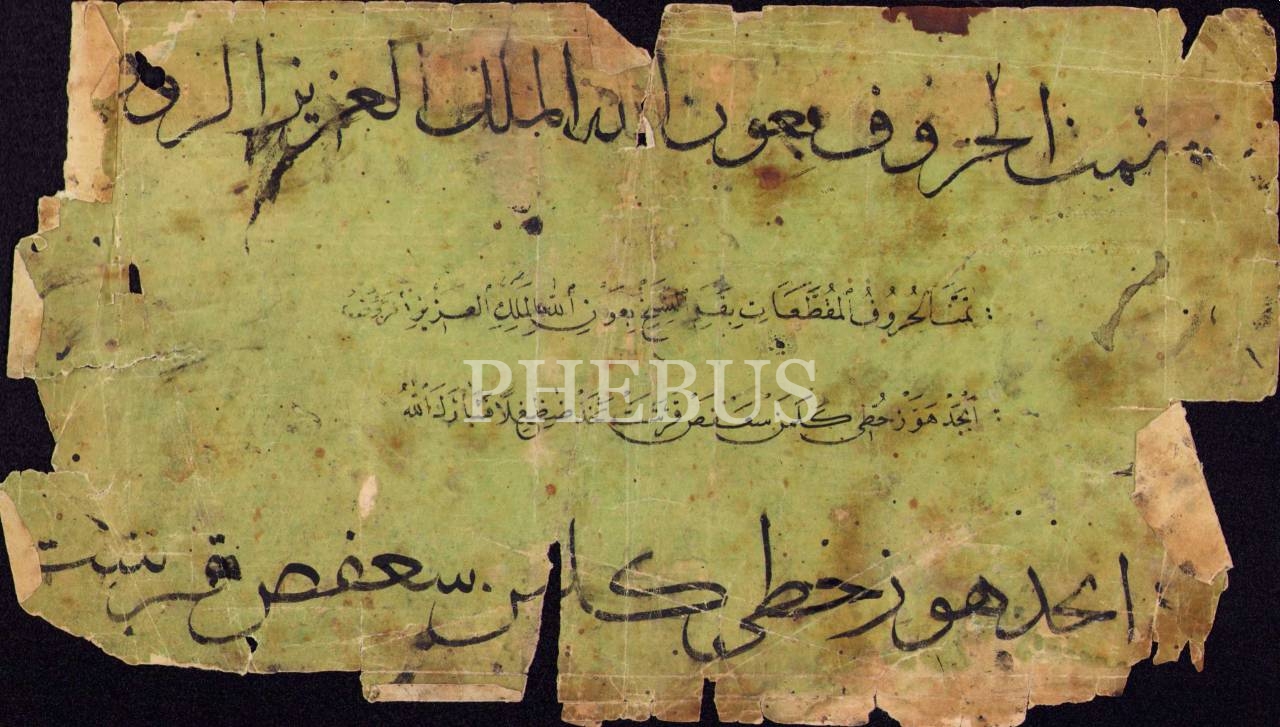 تمت الحروف بعون الله الملك العزيز الرؤف
تمت الحروف المقطعات بقلم النسخ بعون الله الملك العزيز الرؤف
PHEBUS
ابجد هوز حطي كلمن سعفص قرشت ثخذ ضظغلا فتبارك الله
ابجد هوز حطي كلمن سعفص قرشت